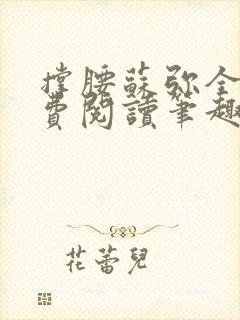 撐腰蘇弥全
費閱讀筆趣
花蕾兒